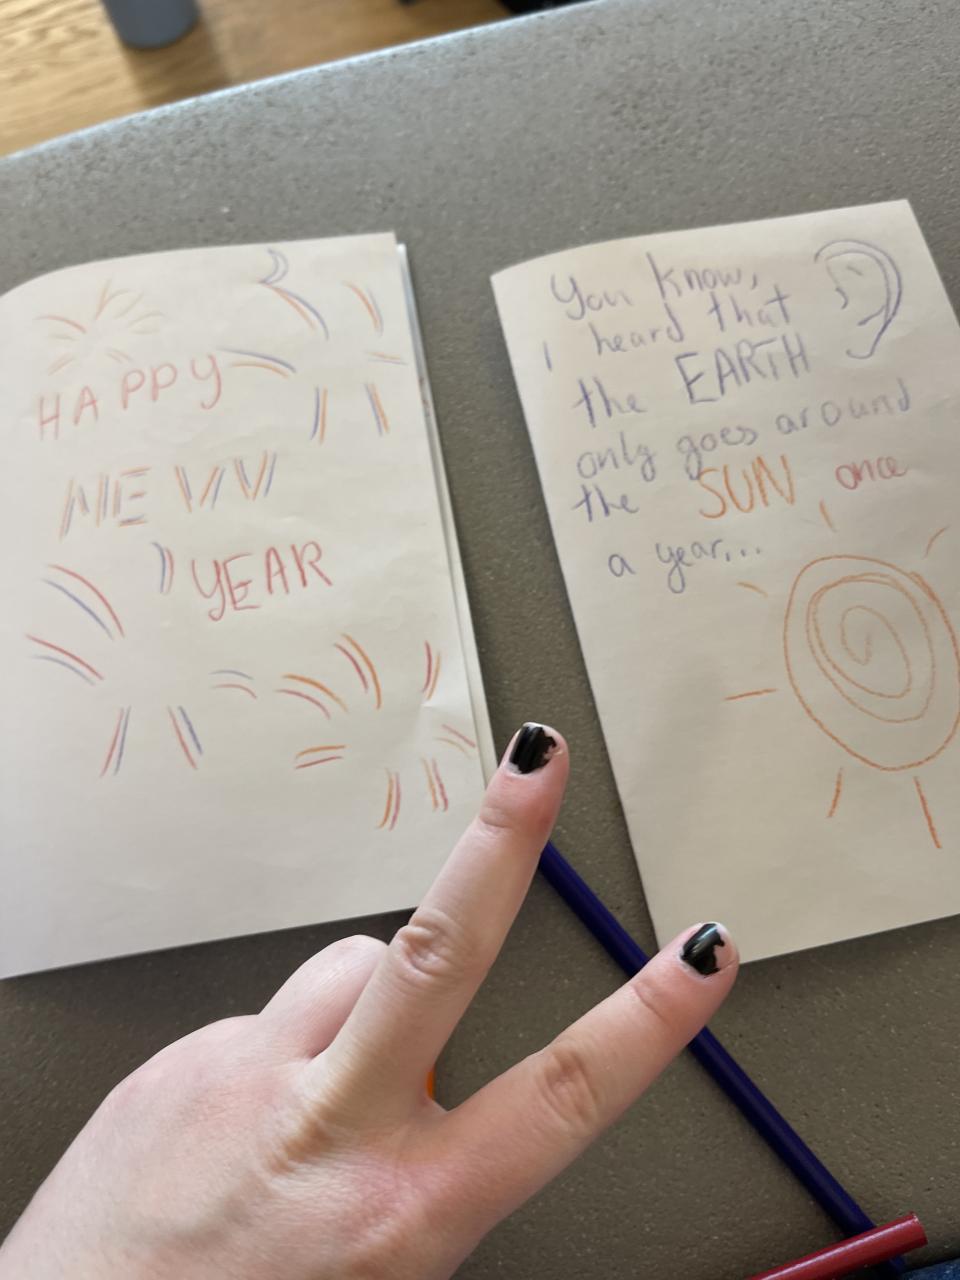 HAPPY
NEW
YEAR
You know,
I heard that
the EARTH
only goes around
the SUN once
a year...